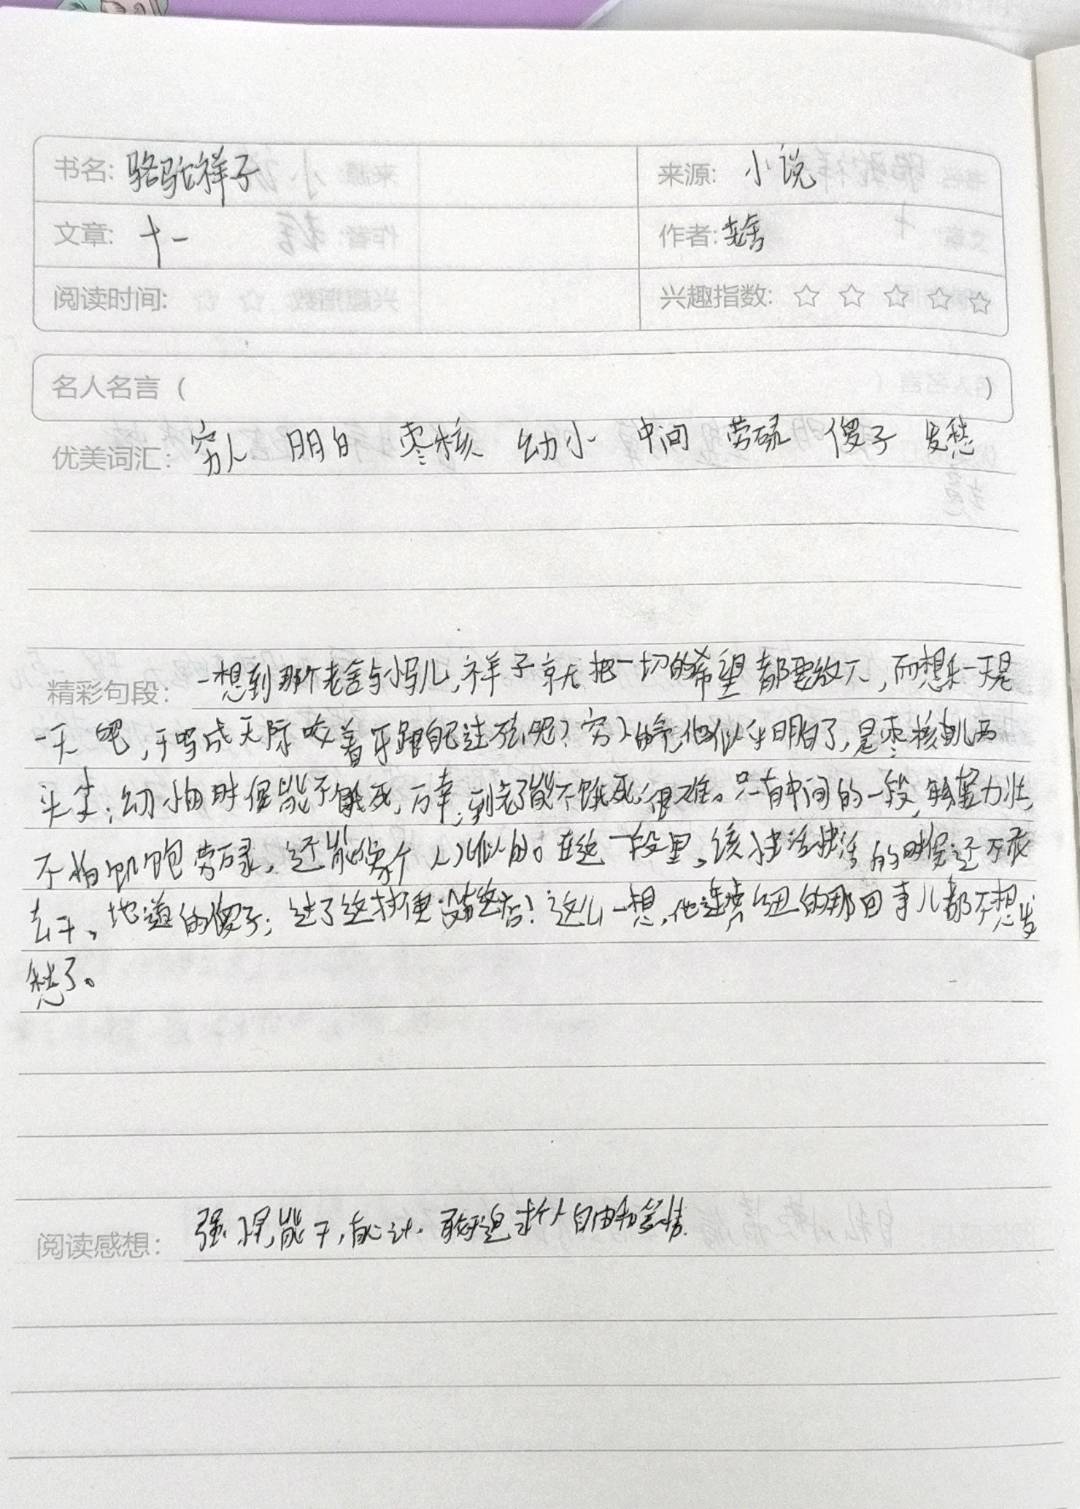 书名: 骆驼祥子 来源: 小说
文章: 十一 作者: 老舍
阅读时间: 兴趣指数: ☆ ☆ ☆ ☆ ☆
名人名言 ( )
优美词汇: 穷人 明白 枣核 幼小 中间 劳碌 傻子 发愁
精彩句段: 一想到那个老者与小马儿,祥子就把一切的希望都要放下,而想乐一天是
一天吧,干吗成天际咬着牙跟自己过不去呢?穷人的命,他似乎明白了,是枣核儿两
头尖:幼小的时候能不饿死,万幸;到老了能不饿死,很难。只有中间的一段,年轻力壮,
不怕饥饱劳碌,还能像个人儿似的。在这一段里,该快活快活的时候还不敢
去干,地道的傻子;过了这村便没有这店!这么一想,他连虎妞的那回事儿都不想发
愁了。
阅读感想: 强 能干,心计 敢于追求个人自由和爱情